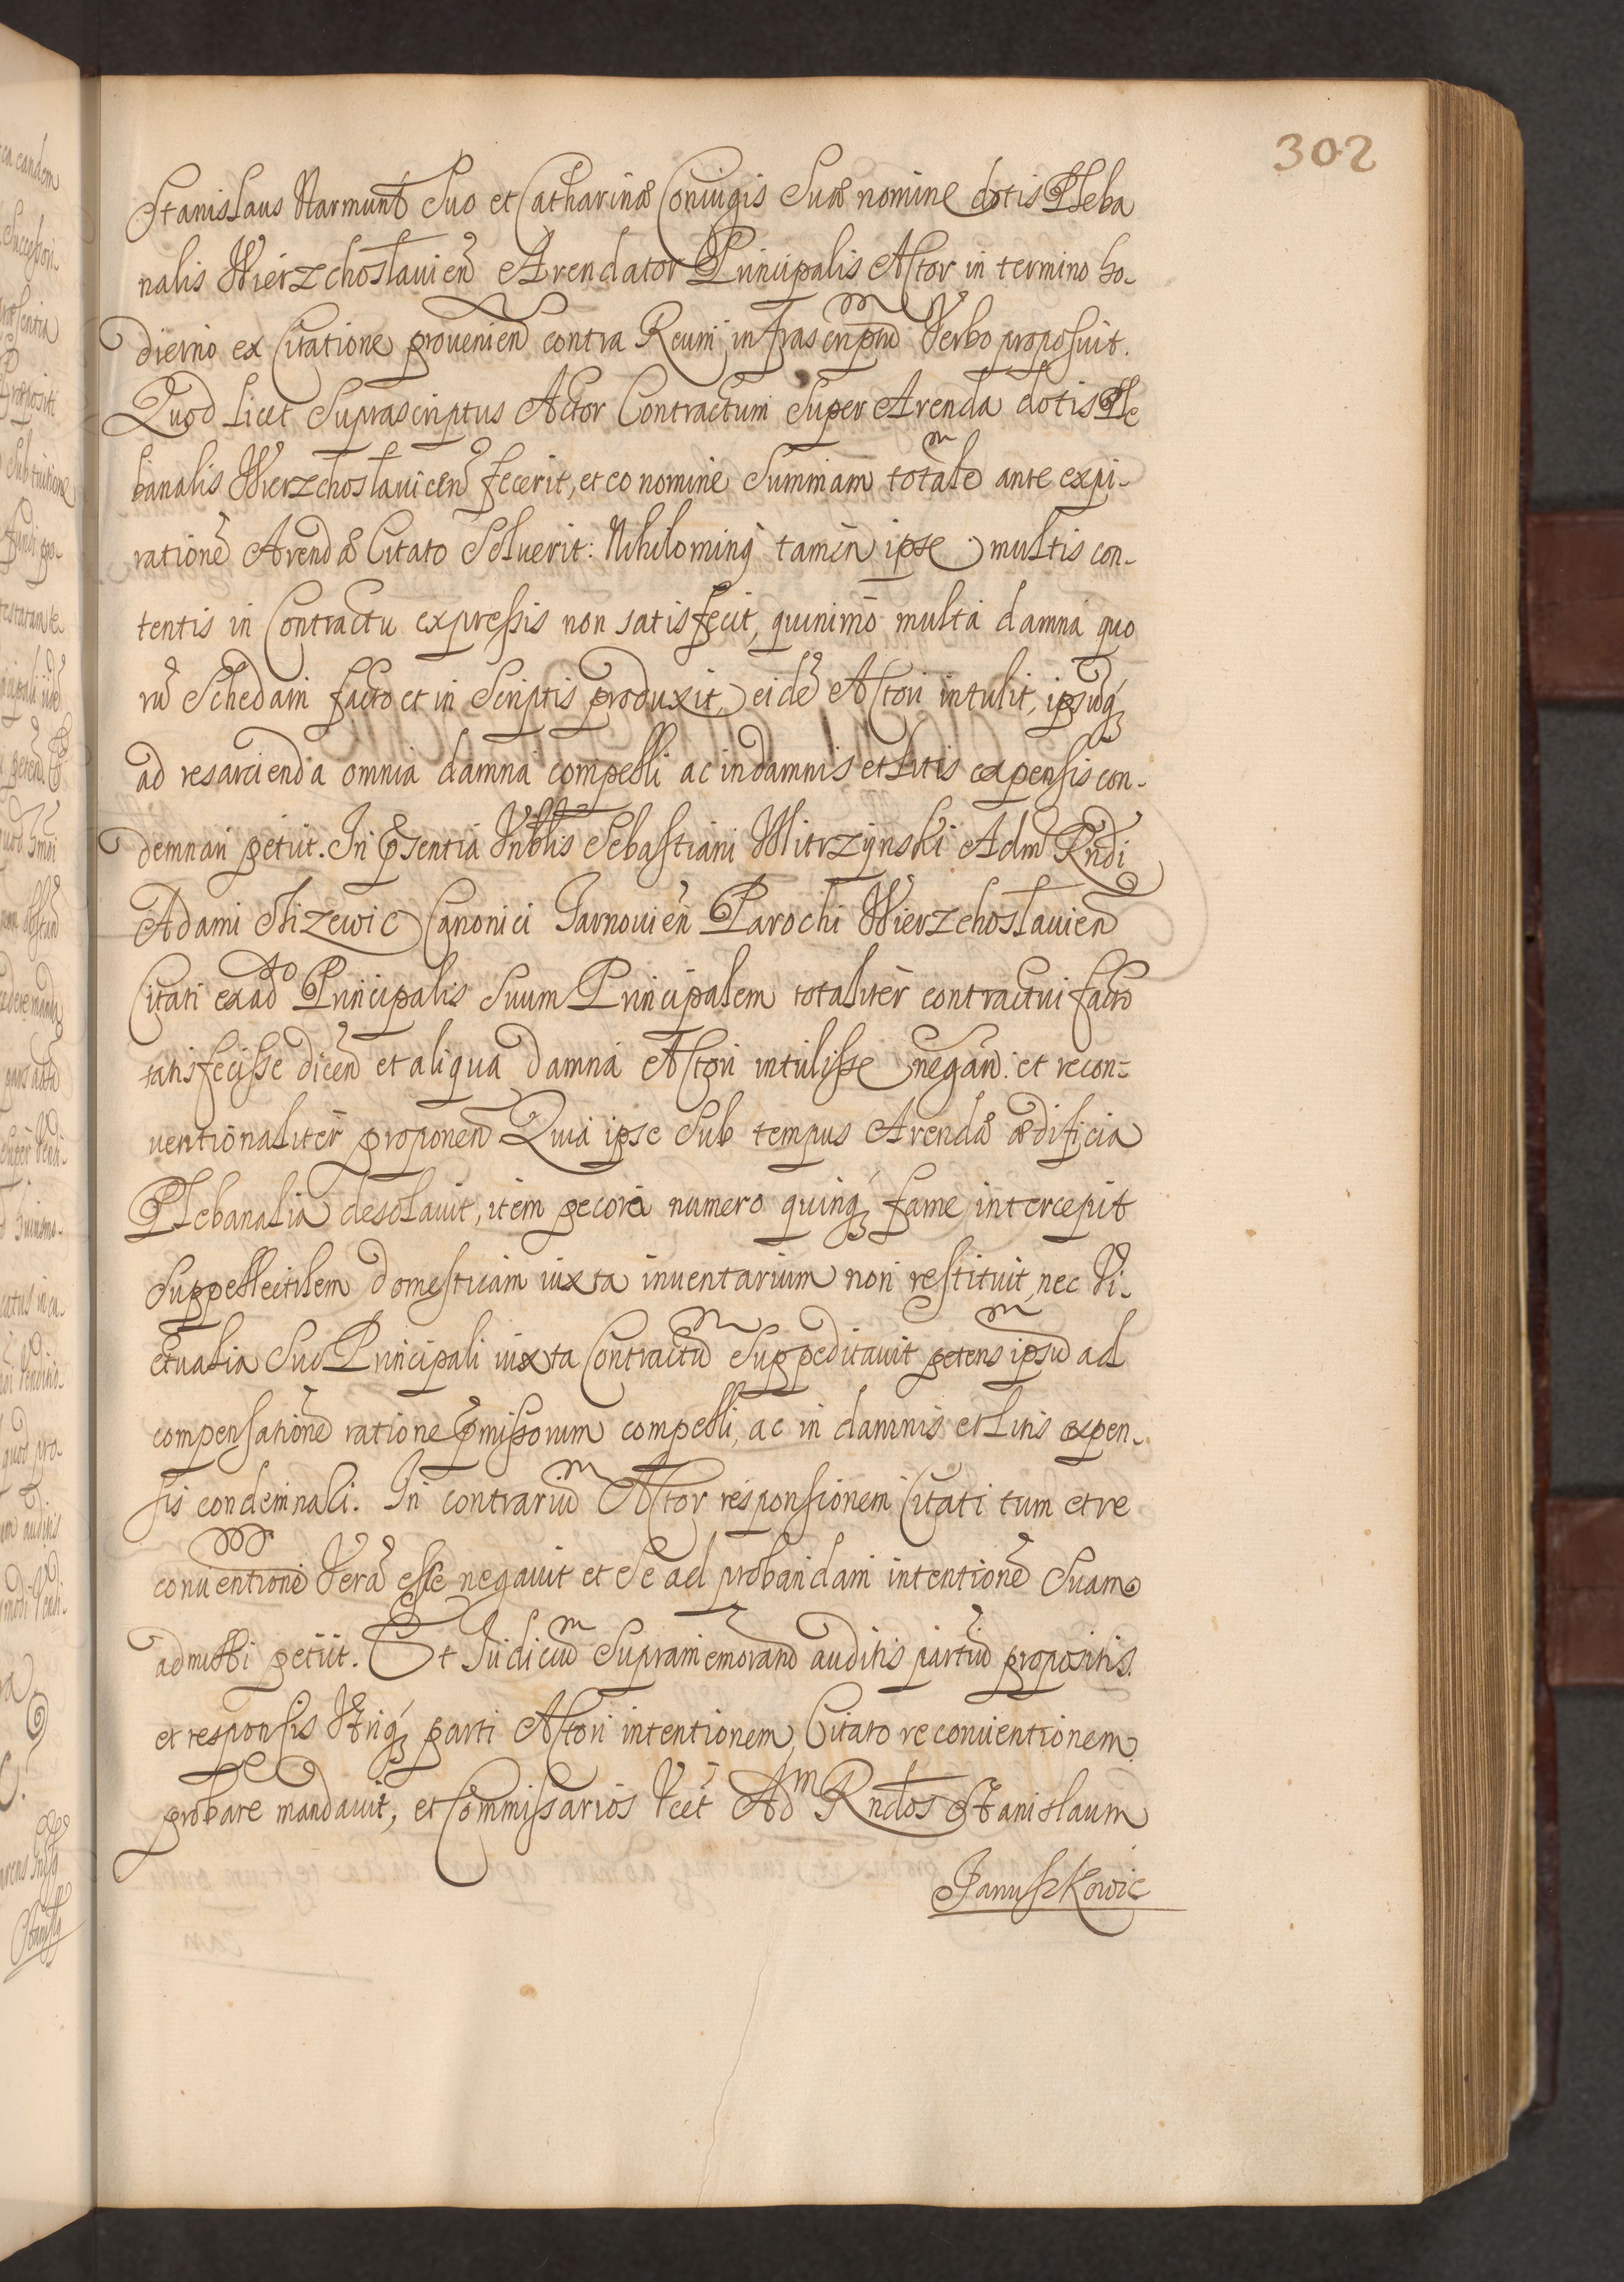 302
Stanislaus Narmunt Suo et Catharinæ Coniugis Suæ nomine dotis Pleba
nalis Wierzchoslauien Arendator Principalis Actor in termino ho-
dierno ex Citatione prouenien contra Reum infrascriptū Verbo proposuit.
Quod licet Suprascriptus Actor Contractum Super Arenda dotis Ple
banalis Wierzchoslauicen fecerit, et eo nomine Summam totale ante expi-
rationē Arendæ Citato Soluerit: Nihilominq tamen ipse multis con-
tentis in Contractu expressis non satisfecit, quinimo multa damna quo
rū Schedam facto et in Scriptis produxit, eidē Actori intulit, ipsūq
ad resarcienda omnia damna compelli ac in damnis et litis expensis con-
demnari petiit. In pręsentia Nobilis Sebastiani Mitrzynski Adm Rndi
Adami Mizewic Canonici Tarnouien Parochi Wierzchoslauien
Citati ex ad Principalis Suum Principalem totaliter contractui facto
satisfecisse dicen et aliqua damna Actori intulisse negan: et recon-
uentionaliter proponen Quia ipse Sub tempus Arendæ ædificia
Plebanalia desolauit, item pecora numero quinq fame intercepit
Suppellectilem domesticam iuxta inuentarium non restituit, nec Vi-
ctualia Suo Principali iuxta Contractū Suppeditauit petens ipsū ad
compensationē ratione pmissorum compelli, ac in damnis et litis expen-
sis condemnali. In contrariū Actor responsionem Citati tum et re
conuentionē Verā esse negauit et Se ad probandam intentionē Suam
admitti petiit. Et Iudiciū Supramemorand auditis partiū propositis
et responsis Vtriq parti Actori intentionem, Citato reconuentionem
probare mandauit, et Commissarios Vcet Adm Rndos Stanislaum
Januszkowic